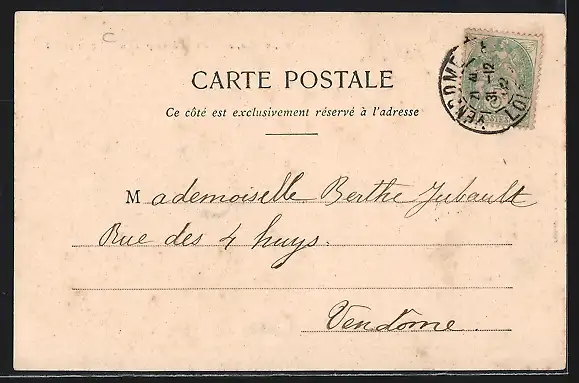 CARTE POSTALE
Ce côté est exclusivement réservé à l'adresse
Mademoiselle Berthe Jubault
Rue des 4 huys.
Vendôme.
VENDOME
31-12